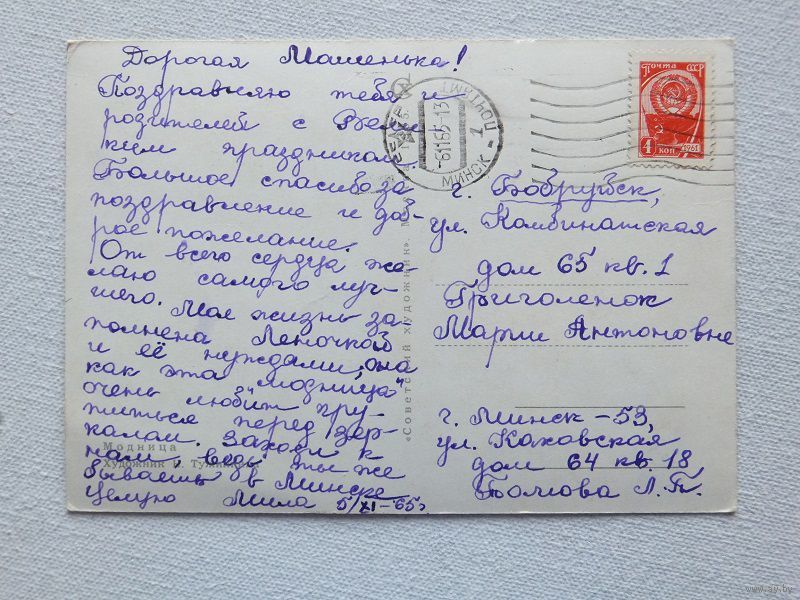 Дорогая Машенька!
Поздравляю тебя и
родителей с Вели
ким праздником.
Большое спасибо за
поздравление и доб-
рое пожелание.
От всего сердца же
лаю самого луч-
шего. Моя жизнь за
полнена Леночкой
и её нуждами, она
как эта "модница"
очень любит кру-
житься перед зер-
калом. Заходи к
нам, ведь ты же
бываешь в Минске
Целую Мила 5/XI-65г
Модница
Художник
«Советский художник».
МИНСК
ПОЧТАМТ
-6 11 65-13
1
ПОЧТА СССР
4 КОП
1961
г. Бобруйск,
ул. Комбинатская
дом 65 кв. 1
Григоленок
Марии Антоновне
г. Минск-53,
ул. Каховская
дом 64 кв. 18
Л.П.